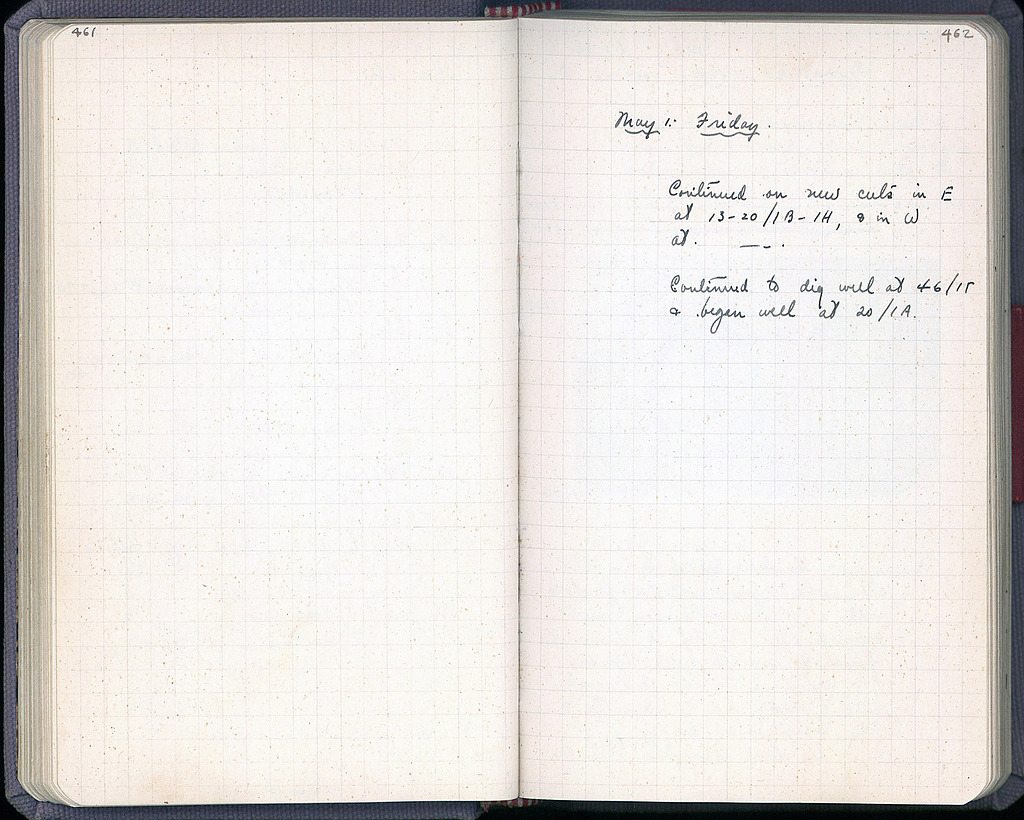 461
462
May 1: Friday.
Continued on new cuts in E
at 13-20/1B-1H, & in W
at. — - .
Continued to dig well at 46/
& began well at 20/1A.